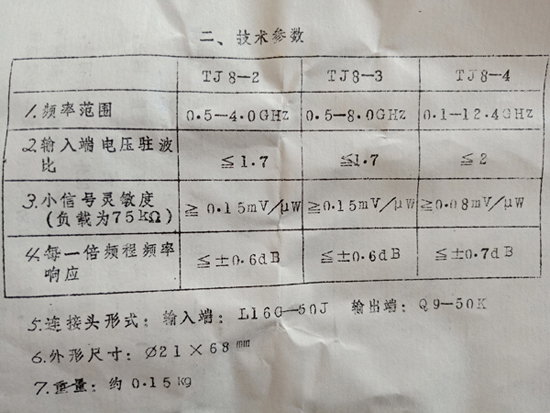 二、技术参数
TJ8-2 TJ8-3 TJ8-4
1.频率范围 0.5-4.0GHz 0.5-8.0GHz 0.1-12.4GHz
2.输入端电压驻波比 ≦1.7 ≦1.7 ≦2
3.小信号灵敏度(负载为75kΩ) ≧0.15mV/μW ≧0.15mV/μW ≧0.08mV/μW
4.每一倍频程频率响应 ≦±0.6dB ≦±0.6dB ≦±0.7dB
5.连接头形式: 输入端: L16G-50J 输出端: Q9-50K
6.外形尺寸: Ø21×68mm
7.重量: 约0.15kg